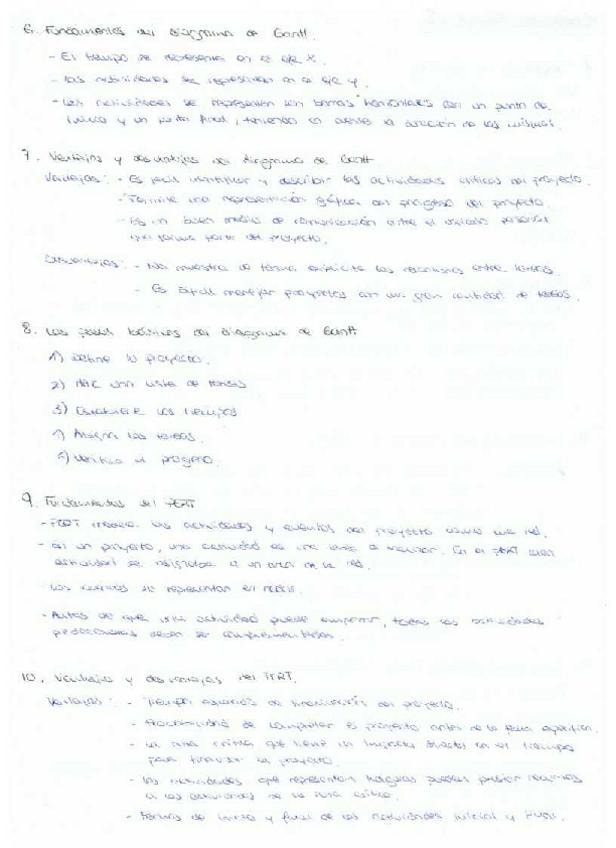 6. Fundamentos del diagrama de Gantt.
- El tiempo se representa en el eje X.
- Las actividades se representan en el eje y.
- Las actividades se representan con barras horizontales con un punto de
inicio y un punto final, teniendo en cuenta la duración de las mismas.
7. Ventajas y desventajas del diagrama de Gantt
Ventajas: - Es fácil identificar y describir las actividades críticas del proyecto.
- Permite una representación gráfica del progreso del proyecto.
- Es un buen medio de comunicación entre el personal
que forma parte del proyecto.
Desventajas: - No muestra de forma explícita las relaciones entre tareas.
- Es difícil manejar proyectos con una gran cantidad de tareas.
8. Los pasos básicos del diagrama de Gantt
1) Define el proyecto.
2) Haz una lista de tareas
3) Establece los tiempos
4) Asigna las tareas.
5) Verifica el progreso.
9. Fundamentos del PERT
- PERT modela las actividades y eventos del proyecto como una red.
- En un proyecto, una actividad es una tarea a realizar. En el PERT cada
actividad se asigna a un arco de la red.
- Los eventos se representan en nodos.
- Antes de que una actividad pueda empezar, todas las actividades
predecesoras deben ser completadas.
10. Ventajas y desventajas del PERT.
Ventajas: - Tiempo esperado de finalización del proyecto.
- Probabilidad de completar el proyecto antes de la fecha especificada.
- La ruta crítica que tiene un impacto directo en el tiempo
para finalizar el proyecto.
- Las actividades que representan holguras pueden prestar recursos
a las actividades de la ruta crítica.
- Fechas de inicio y final de las actividades inicial y final.